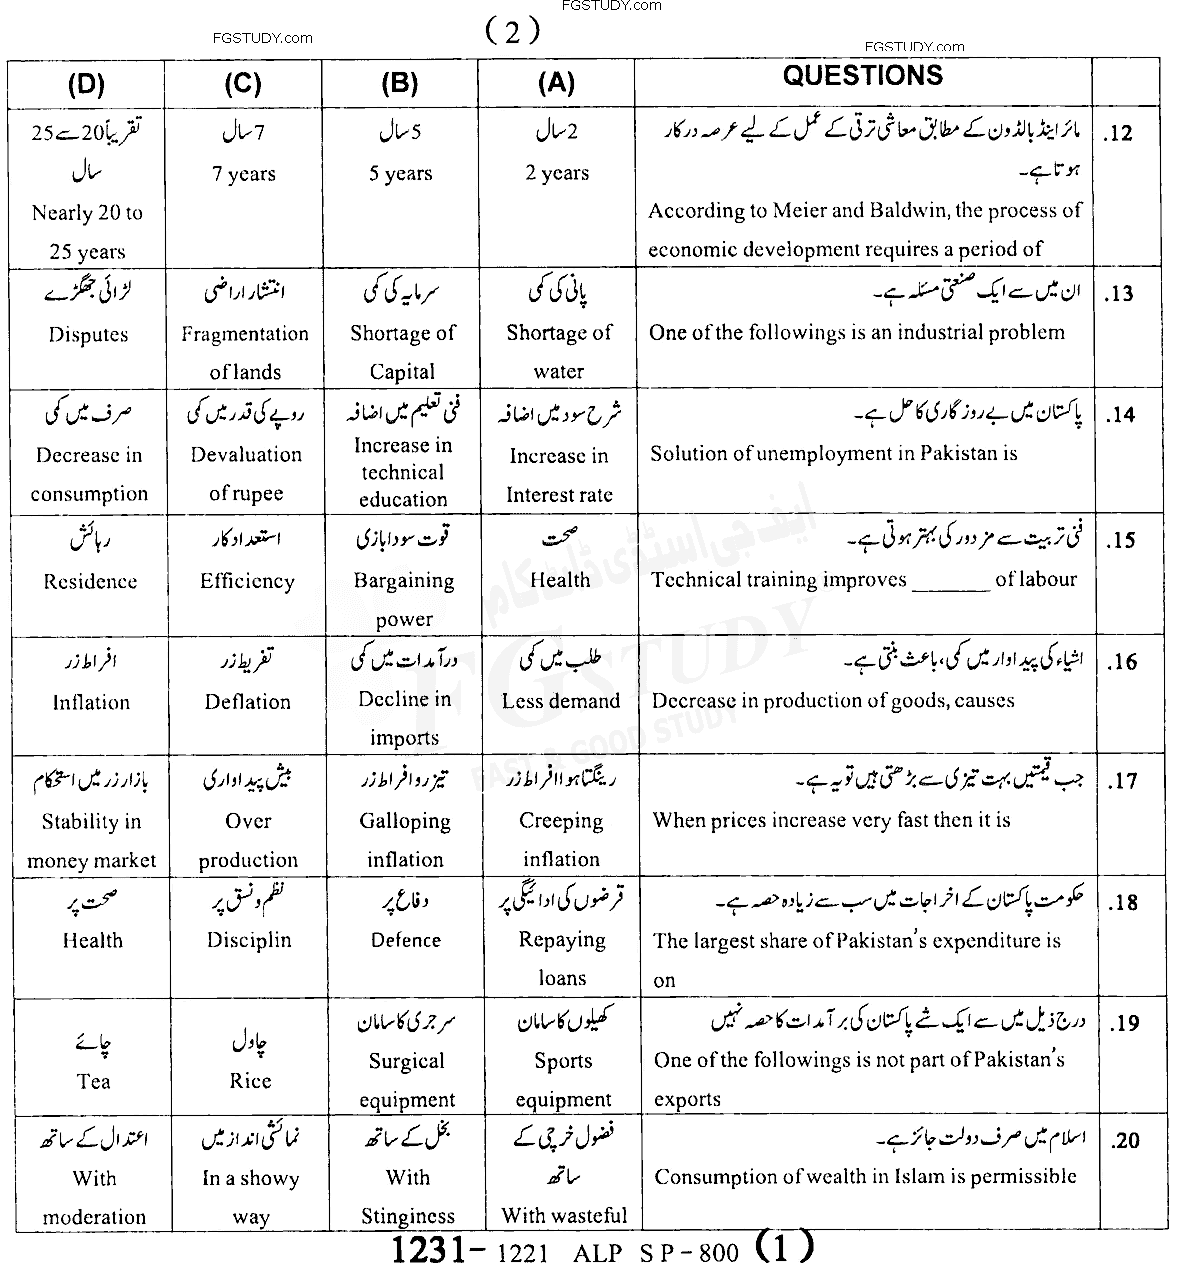 FGSTUDY.com
FGSTUDY.com
(2)
FGSTUDY.com
(D) (C) (B) (A) QUESTIONS
تقریباً 20 سے 25 7 سال 5 سال 2 سال مائر اینڈ بالڈون کے مطابق معاشی ترقی کے عمل کے لیے عرصہ درکار .12
سال ہوتا ہے۔
7 years 5 years 2 years
Nearly 20 to According to Meier and Baldwin, the process of
25 years economic development requires a period of
لڑائی جھگڑے انتشار اراضی سرمایہ کی کمی پانی کی کمی ان میں سے ایک صنعتی مسئلہ ہے۔ .13
Disputes Fragmentation Shortage of Shortage of One of the followings is an industrial problem
of lands Capital water
صرف میں کمی روپے کی قدر میں کمی فنی تعلیم میں اضافہ شرح سود میں اضافہ پاکستان میں بے روزگاری کا حل ہے۔ .14
Decrease in Devaluation Increase in Increase in Solution of unemployment in Pakistan is
technical
consumption of rupee education Interest rate
رہائش استعداد کار قوت سودا بازی صحت فنی تربیت سے مزدور کی بہتر ہوتی ہے۔ .15
Residence Efficiency Bargaining Health Technical training improves _______ of labour
power
افراط زر تفریط زر درآمدات میں کمی طلب میں کمی اشیاء کی پیداوار میں کمی، باعث بنتی ہے۔ .16
Inflation Deflation Decline in Less demand Decrease in production of goods, causes
imports
بازار زر میں استحکام بیش پیداواری تیز رو افراط زر رینگتا ہوا افراط زر جب قیمتیں بہت تیزی سے بڑھتی ہیں تو یہ ہے۔ .17
Stability in Over Galloping Creeping When prices increase very fast then it is
money market production inflation inflation
صحت پر نظم و نسق پر دفاع پر قرضوں کی ادائیگی پر حکومت پاکستان کے اخراجات میں سب سے زیادہ حصہ ہے۔ .18
Health Disciplin Defence Repaying The largest share of Pakistan's expenditure is
loans on
چائے چاول سرجری کا سامان کھیلوں کا سامان درج ذیل میں سے ایک شے پاکستان کی برآمدات کا حصہ نہیں .19
Tea Rice Surgical Sports One of the followings is not part of Pakistan's
equipment equipment exports
اعتدال کے ساتھ نمائشی انداز میں بخل کے ساتھ فضول خرچی کے اسلام میں صرف دولت جائز ہے۔ .20
ساتھ
With In a showy With Consumption of wealth in Islam is permissible
moderation way Stinginess With wasteful
ایف جی اسٹڈی ڈاٹ کام
FGSTUDY
FAST & GOOD STUDY
1231- 1221 ALP S P-800 (1)